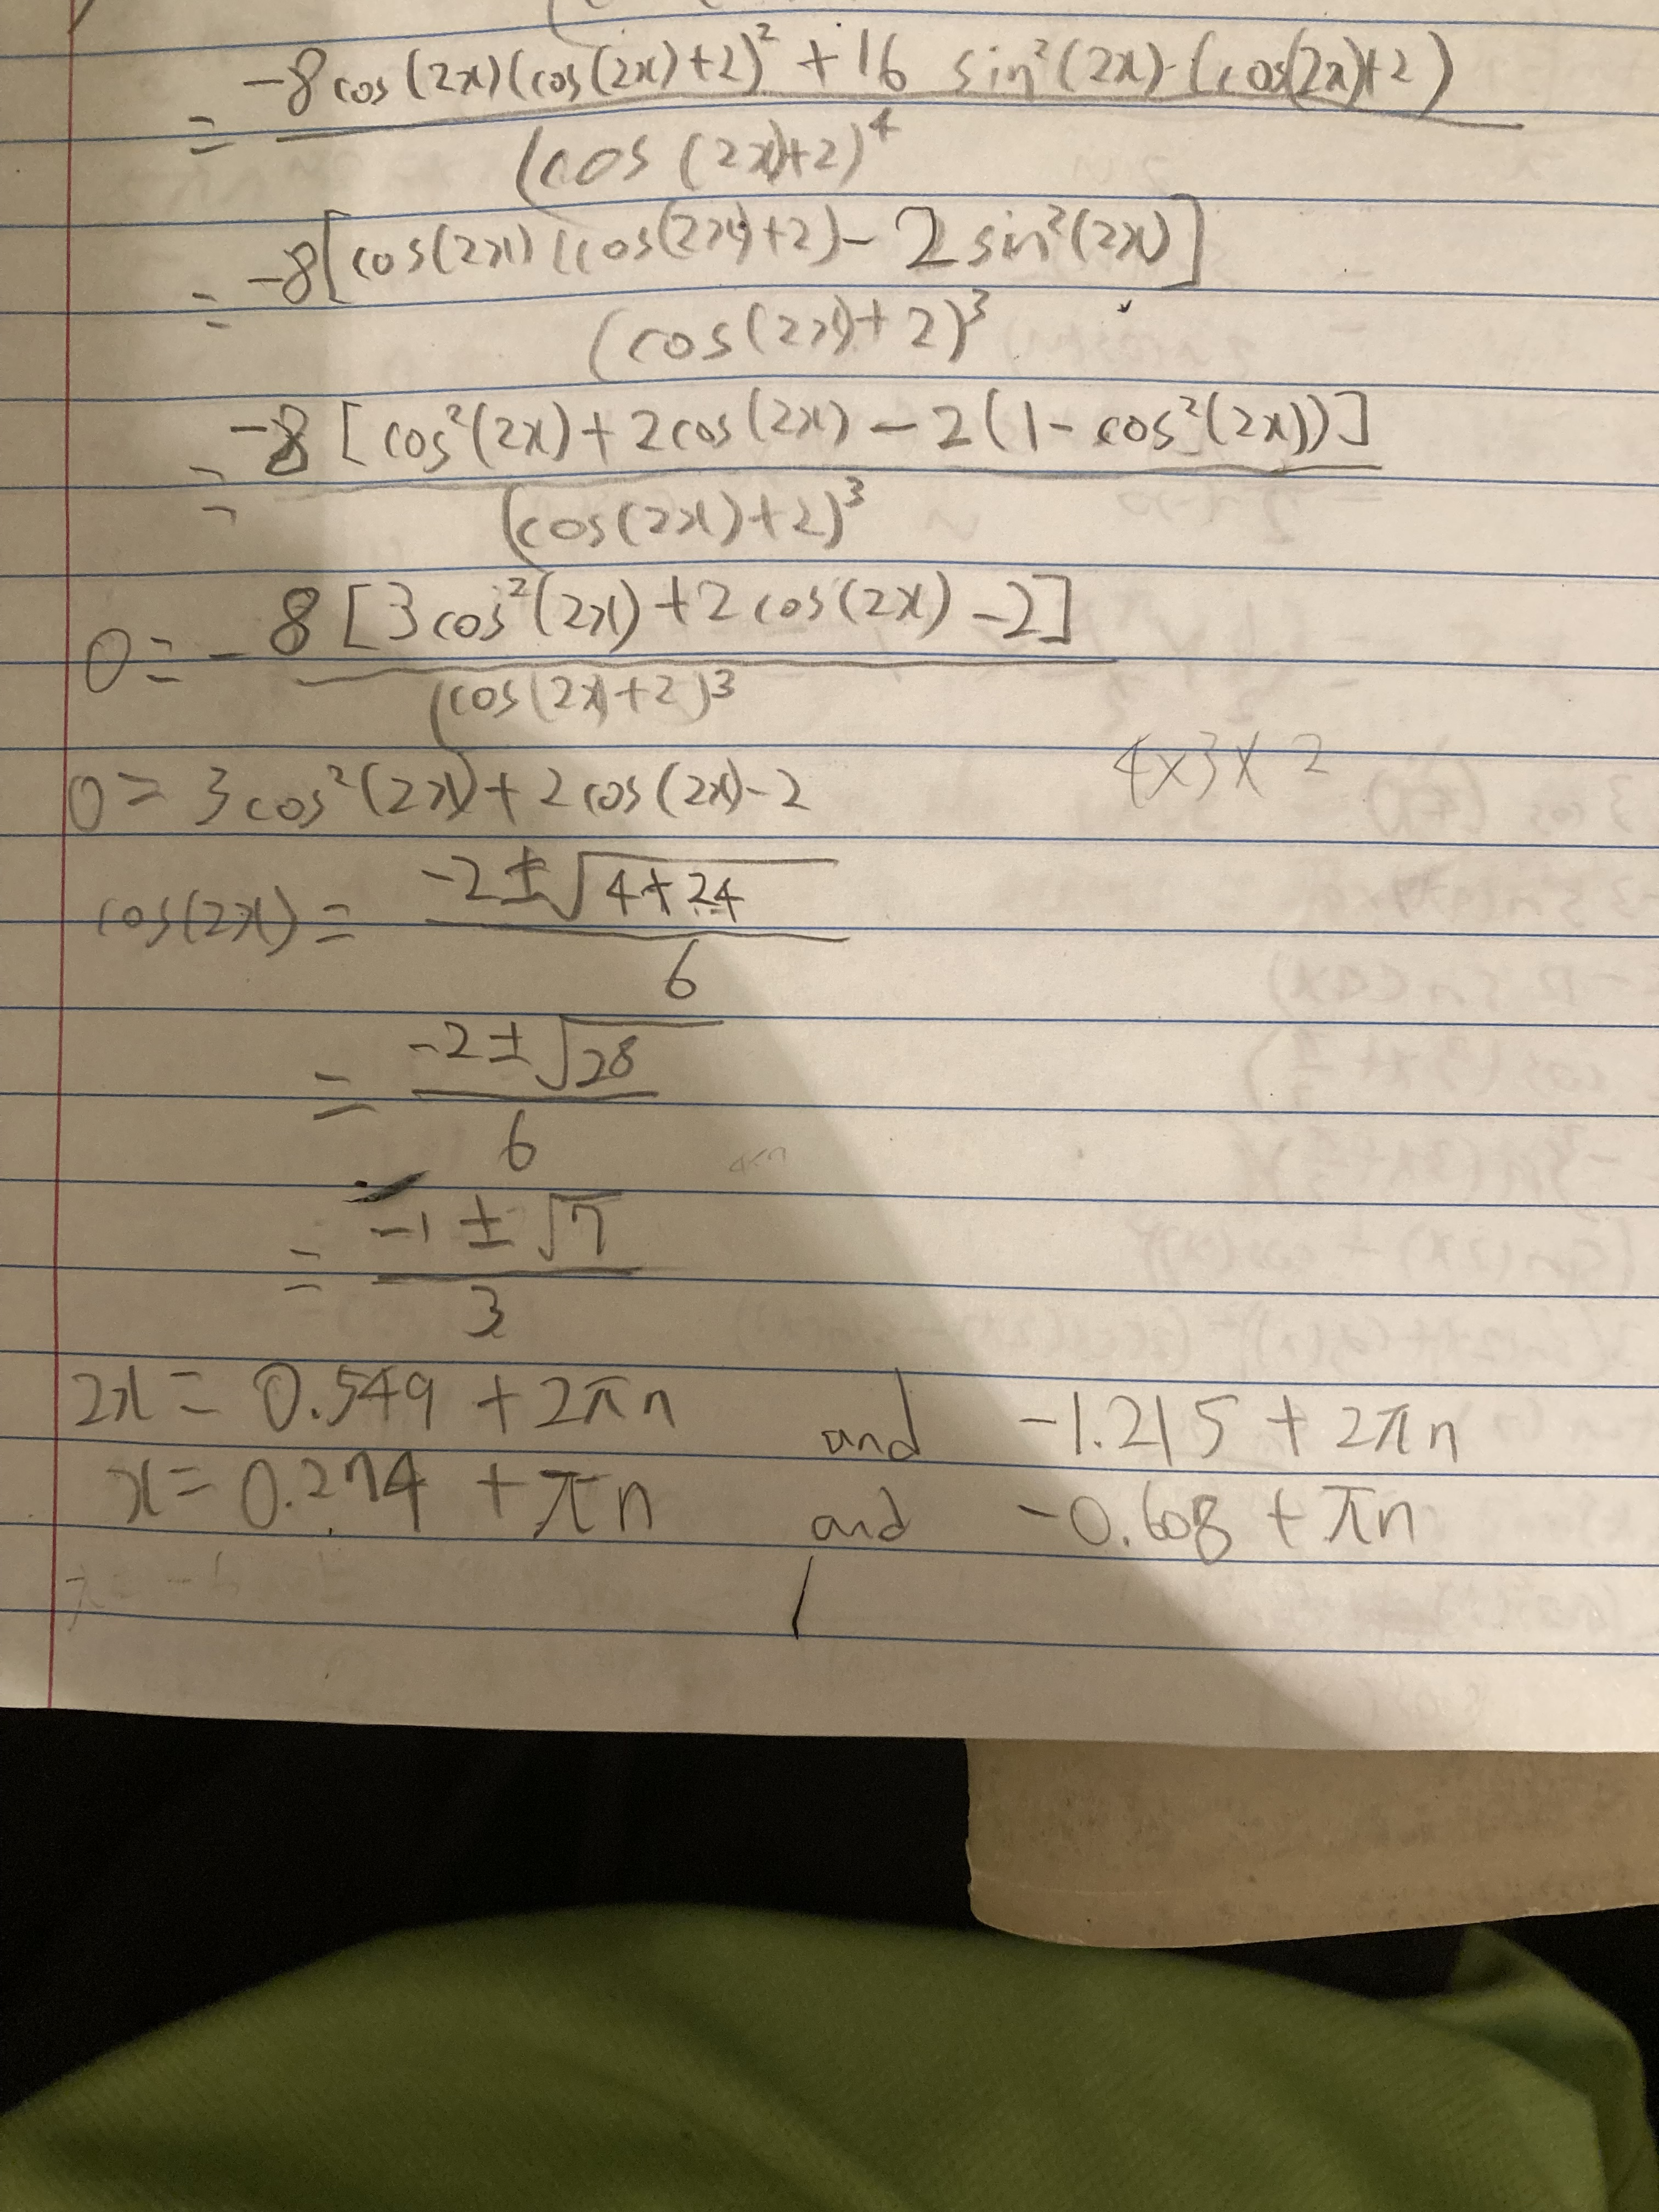 = -8cos(2x)(cos(2x)+2)² + 16 sin²(2x)·(cos(2x)+2)
(cos(2x)+2)⁴
= -8[cos(2x)(cos(2x)+2) - 2sin²(2x)]
(cos(2x)+2)³
= -8[cos²(2x)+2cos(2x) - 2(1-cos²(2x))]
(cos(2x)+2)³
0= -8[3cos²(2x)+2cos(2x)-2]
(cos(2x)+2)³
4×3×2
0= 3cos²(2x)+2cos(2x)-2
cos(2x)= -2±√4+24
6
= -2±√28
6
= -1±√7
3
2x= 0.549 + 2πn and -1.215 + 2πn
x= 0.274 + πn and -0.608 + πn